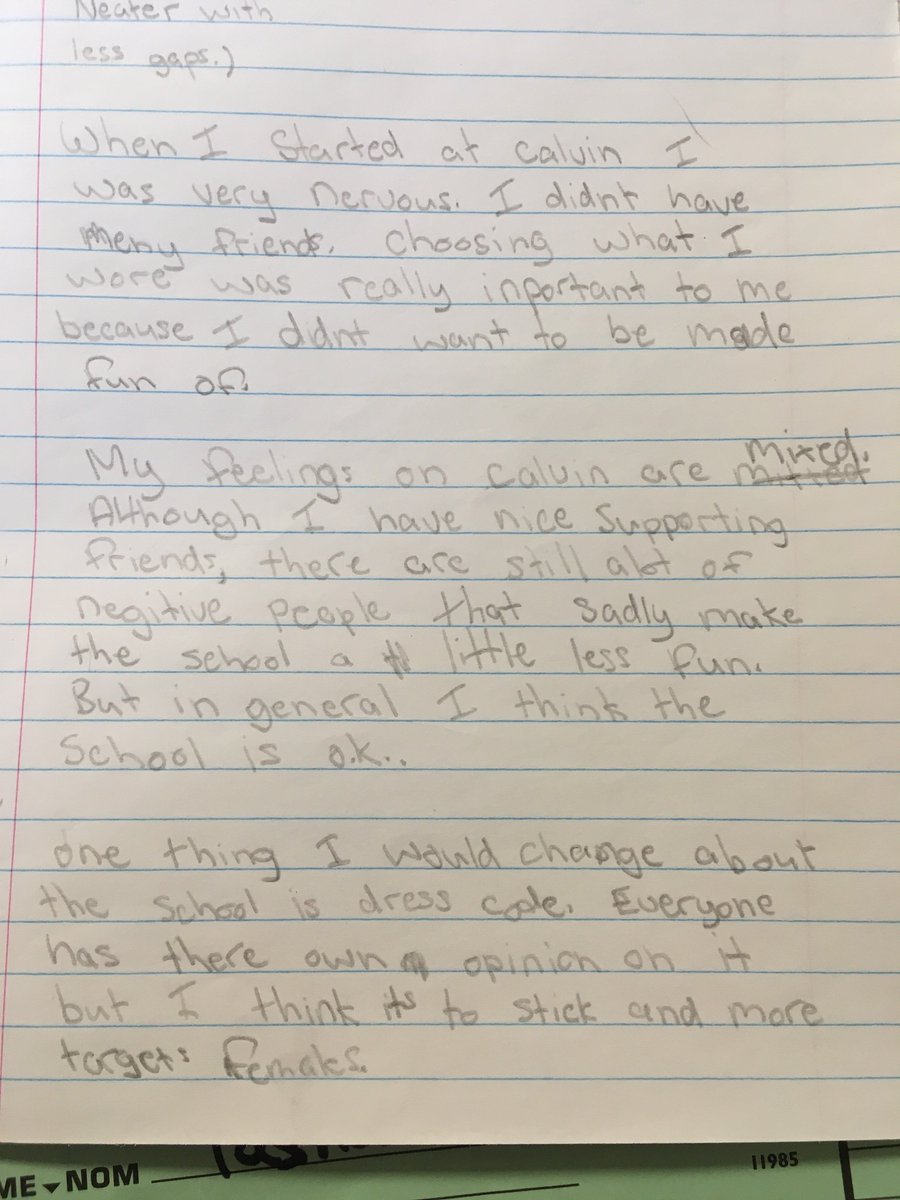 Neater with
less gaps.)
When I Started at Calvin I
was very nervous. I didnt have
meny friends. Choosing what I
wore was really inportant to me
because I didnt want to be made
fun of.
My feelings on Calvin are mixed.
Although I have nice Supporting
friends, there are still alot of
negitive people that sadly make
the school a little less fun.
But in general I think the
School is o.k..
One thing I would change about
the school is dress code. Everyone
has there own opinion on it
but I think its to stick and more
targets females.
ME NOM
11985